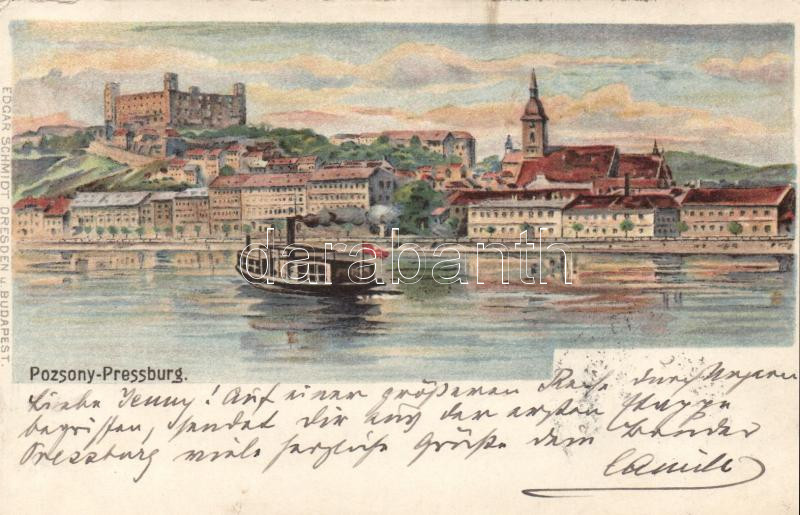 EDGAR SCHMIDT, DRESDEN u. BUDAPEST.
darabanth
Pozsony-Pressburg.
Liebe Jenny! Auf einer größeren Reise durch Ungarn
begriffen, sendet dir aus der ersten Etappe
Pressburg viele herzliche Grüße dein Bruder
Camillo